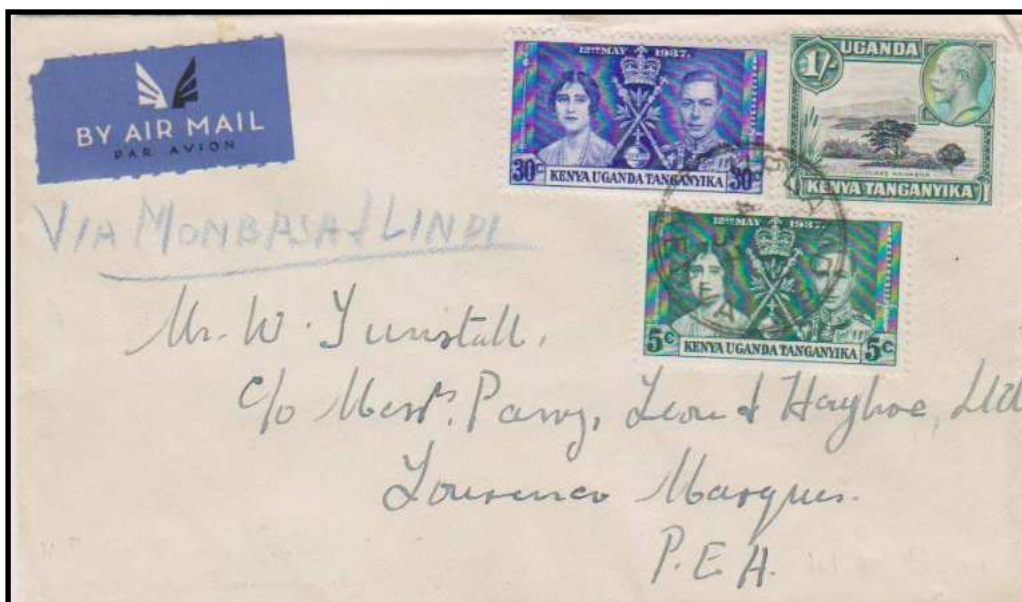 BY AIR MAIL
PAR AVION
12TH MAY 1937.
30c 30c
KENYA UGANDA TANGANYIKA
1/-
UGANDA
LAKE NAIVASHA
KENYA TANGANYIKA
12TH MAY 1937.
5c 5c
KENYA UGANDA TANGANYIKA
VIA MONBASA & LINDI
Mr. W. Tunstall,
c/o Messrs. Parry, Leon & Hayhoe, Ltd
Lourenco Marques.
P.E.A.